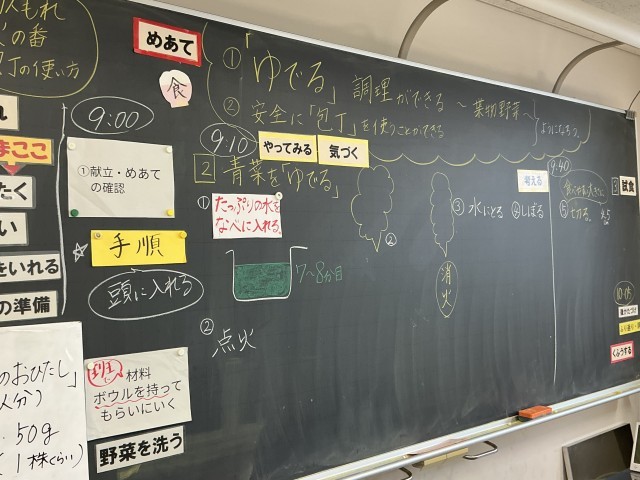 の番
の使い方
めあて
食
①「ゆでる」調理ができる 〜葉物野菜〜
②安全に「包丁」を使うことができる
ようになろう。
9:00
9:10
やってみる
気づく
9:40
①献立・めあて
の確認
手順
頭に入れる
2 青菜を「ゆでる」
①
たっぷりの水を
なべに入れる。
7〜8分目
②
点火
②
消火
③水にとる
④しぼる
考える
⑤
試食
まここ
たく
い
をいれる
の準備
のおひたし」
人分)
50g
1株くらい)
班に 材料
ボウルを持って
もらいにいく
野菜を洗う
くふうする